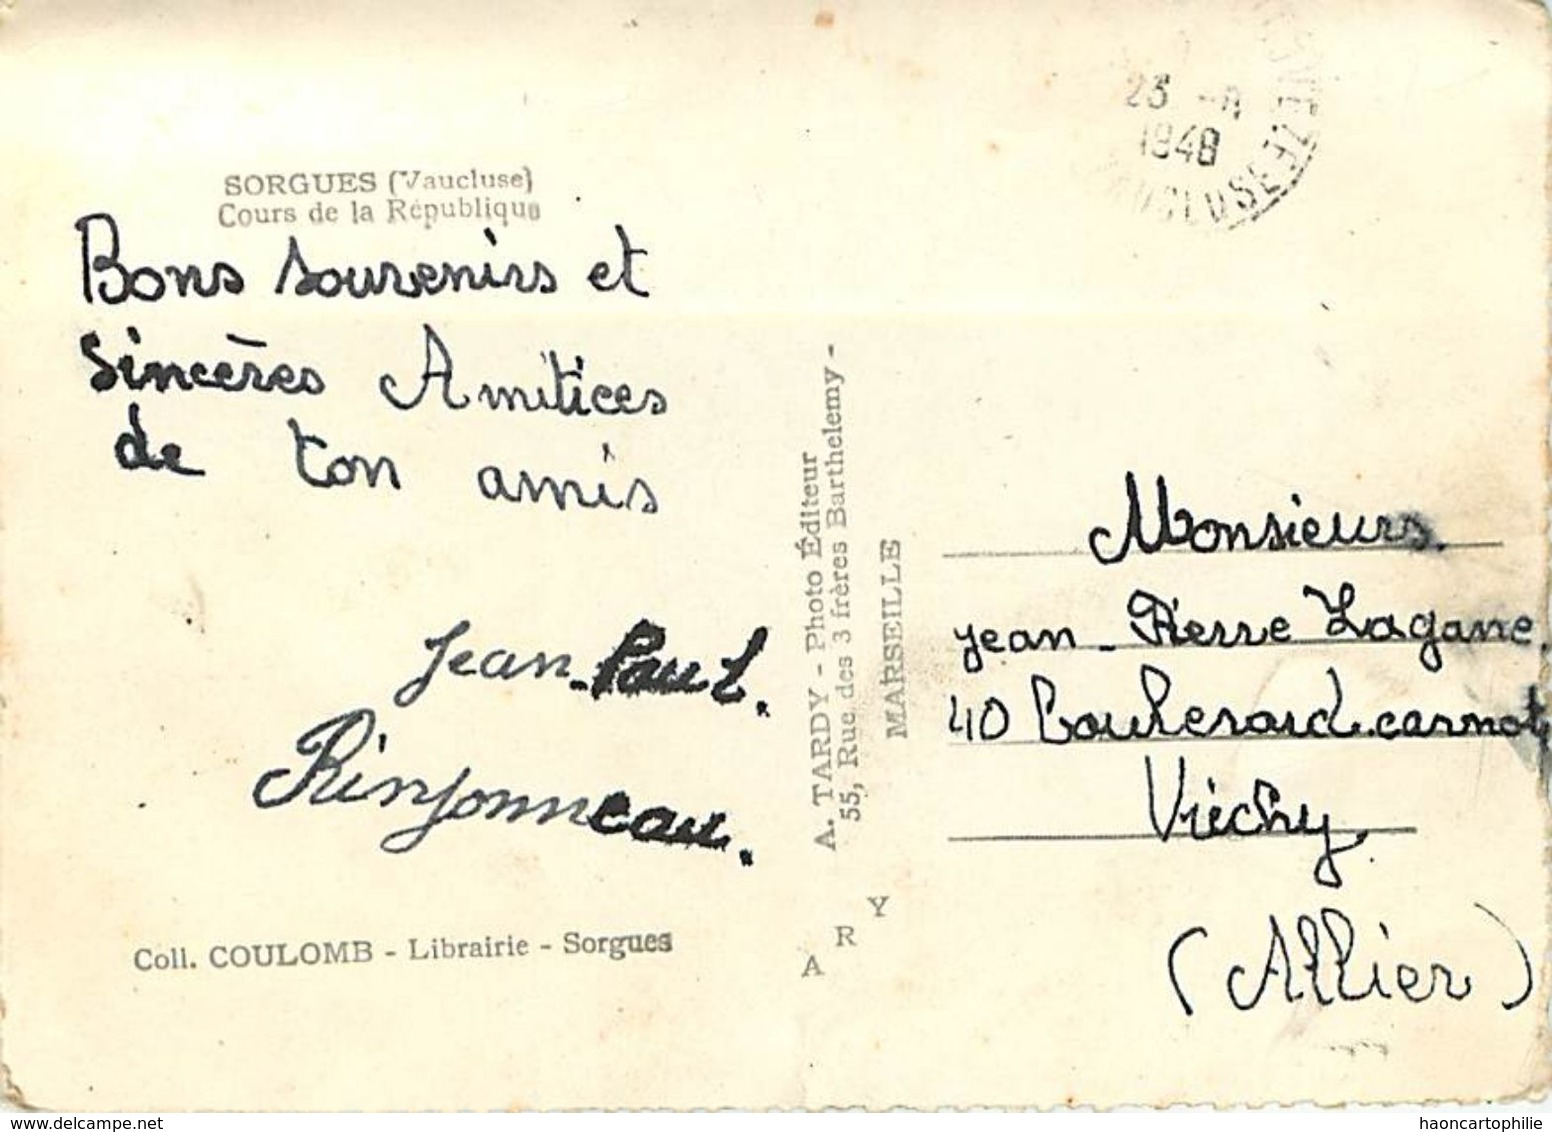 SORGUES (Vaucluse)
Cours de la République
Bons souvenirs et
sincères Amitiees
de ton amis
Jean-Paul.
Rinjonneau.
Coll. COULOMB - Librairie - Sorgues
A. TARDY - Photo Éditeur
55, Rue des 3 frères Barthelemy -
MARSEILLE
ARY
23
1948
VAUCLUSE
Monsieurs.
jean-Pierre Lagane.
40 Bouherard.carnot
Vichy.
(Allier)
delcampe.net
haoncartophilie